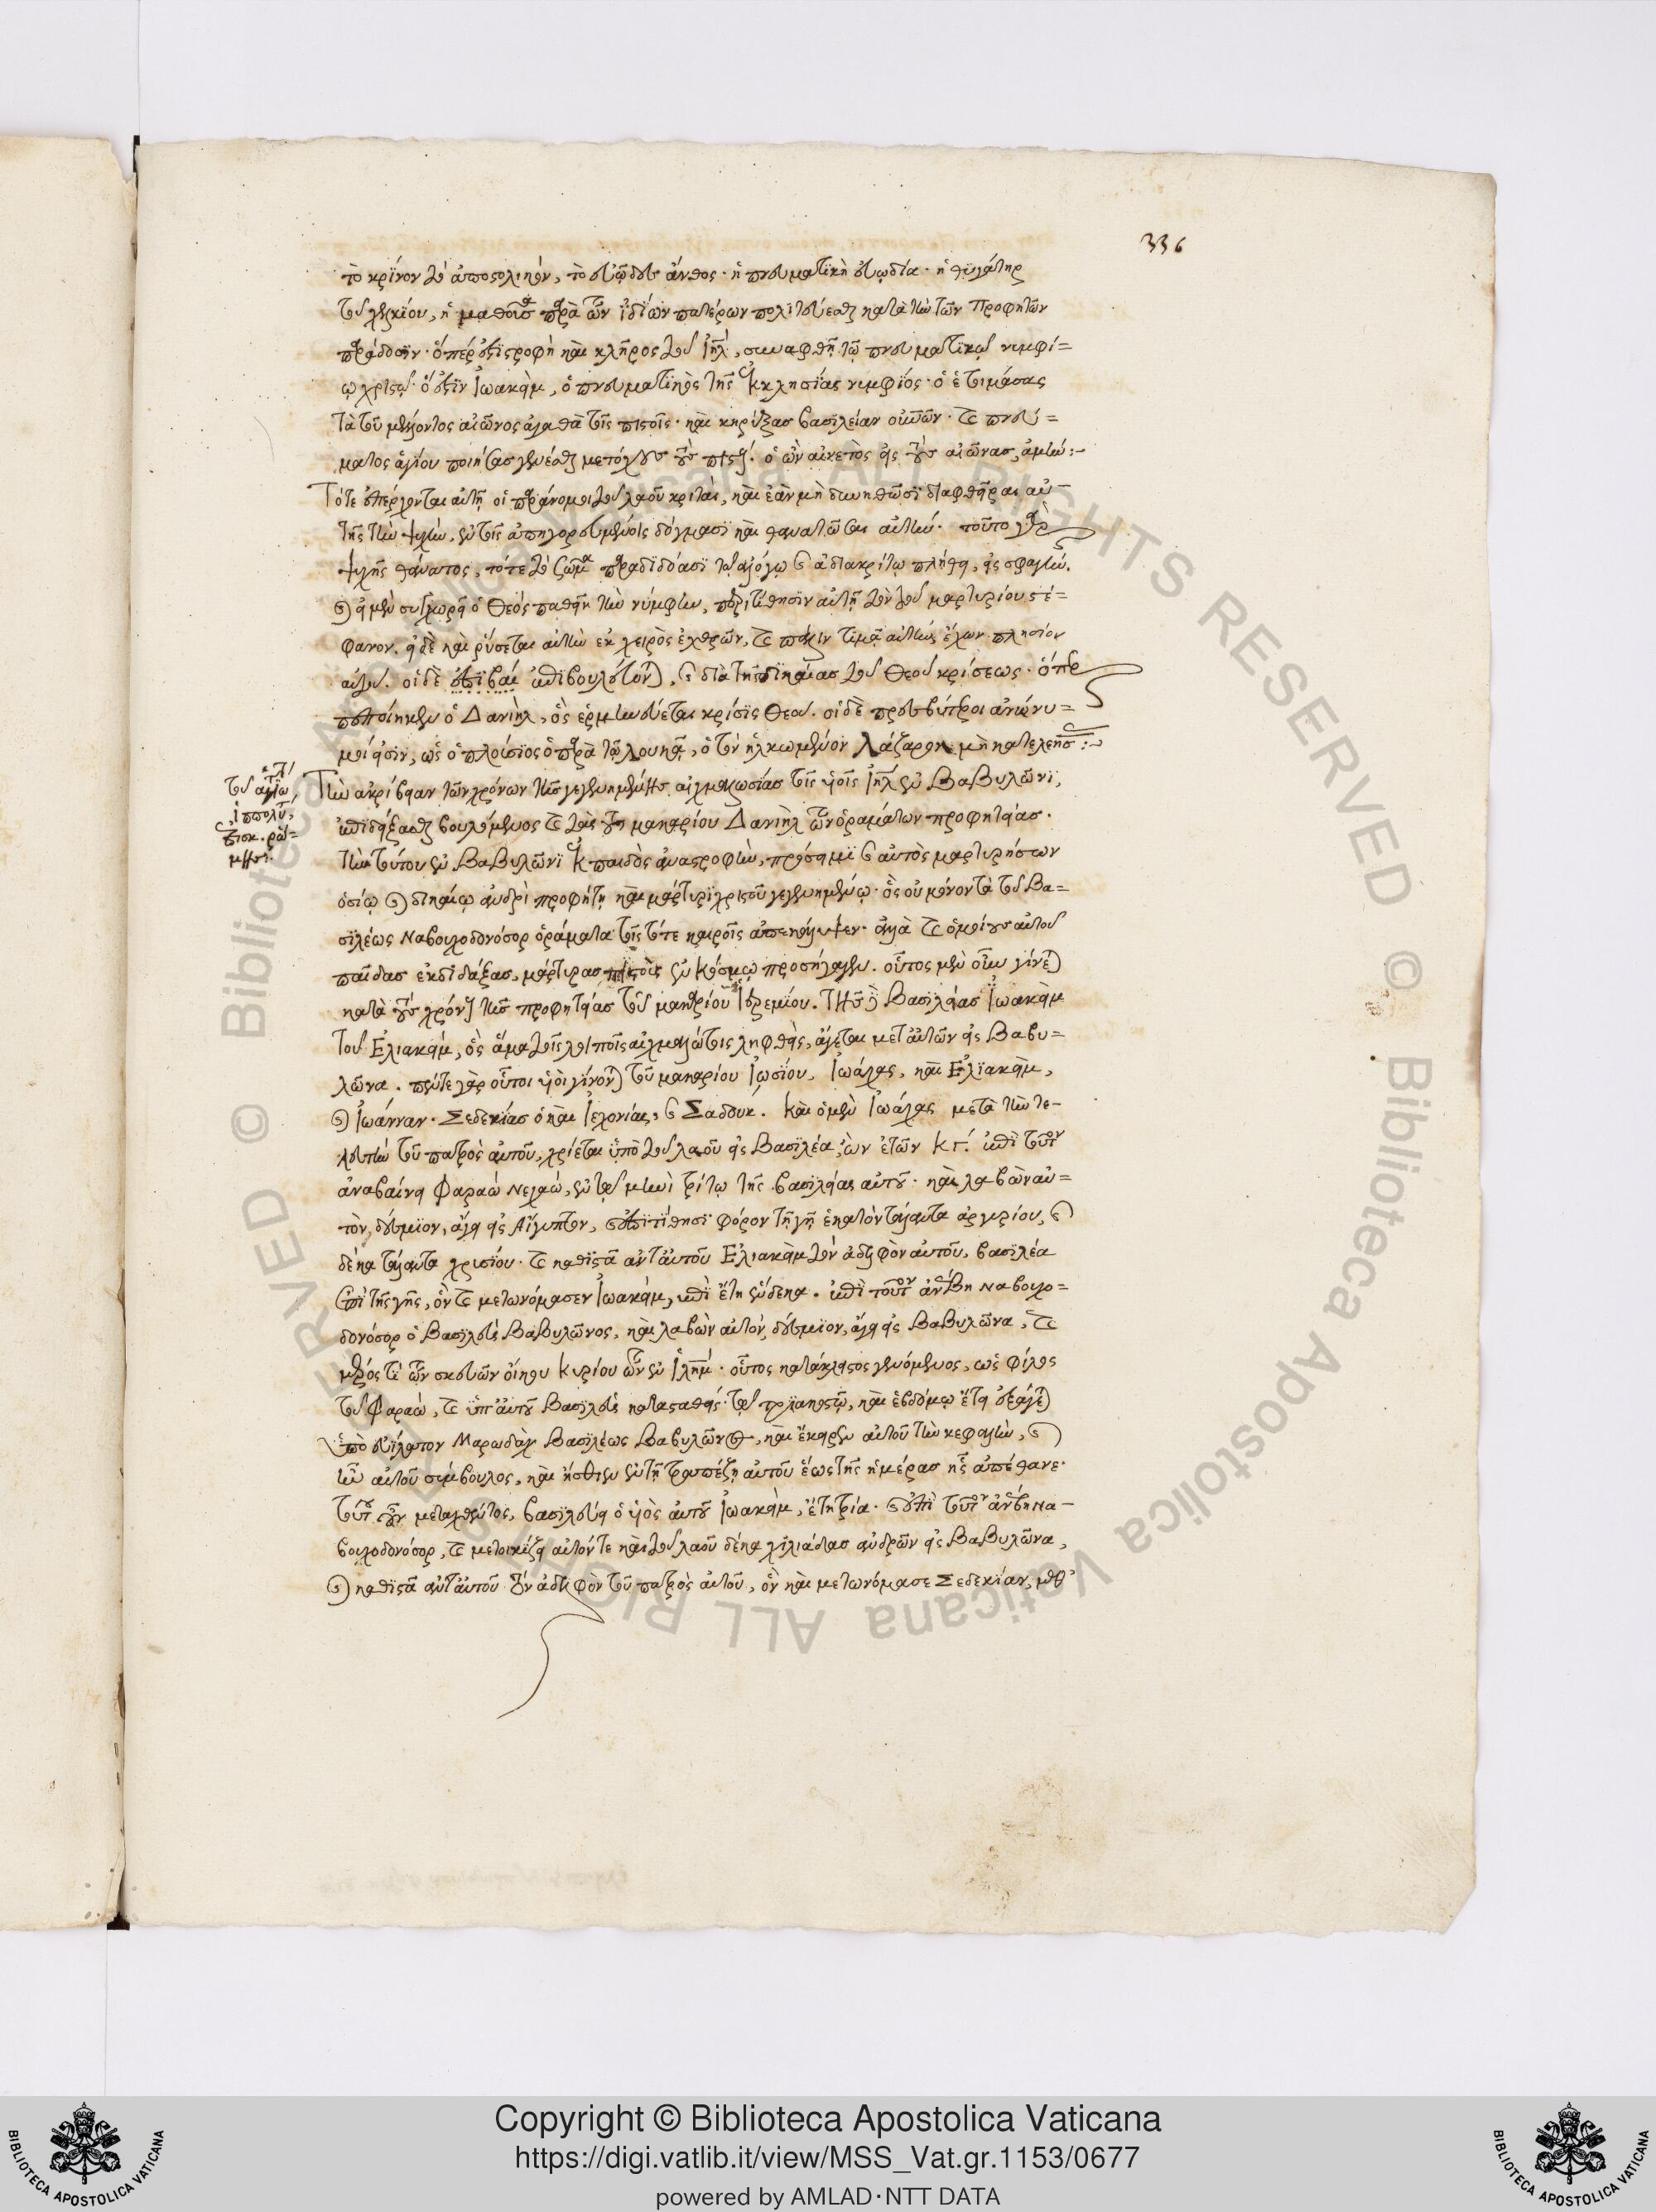 336
τὸ κρῖνον τὸ ἀποστολικόν, τὸ εὐῶδες ἄνθος· ἡ πνευματικὴ εὐωδία· ἡ θυγάτηρ
τοῦ χελκίου, ἡ μαθοῦσα παρὰ τῶν ἰδίων πατέρων πολιτεύεσθαι κατὰ τὴν τῶν Προφητῶν
παράδοσιν· ὅπερ ἐστὶ στροφὴ καὶ κλῆρος τοῦ ἰηλ, συναφθῇ τῷ πνευματικῷ νυμφί=
ῳ χριστῷ· ὅ ἐστιν Ἰωακὰμ, ὁ πνευματικὸς τῆς ἐκκλησίας νυμφίος· ὁ ἑτοιμάσας
τὰ τοῦ μέλλοντος αἰῶνος ἀγαθὰ τοῖς πιστοῖς· καὶ κηρύξας βασιλείαν οὐρανῶν· καὶ πνεύ=
ματος ἁγίου ποιήσας γενέσθαι μετόχους τοὺς πιστούς· ὁ ὢν αἰνετὸς εἰς τοὺς αἰῶνας, ἀμήν:-
Τότε ἐπέρχονται αὐτῇ οἱ παράνομοι τοῦ λαοῦ κριταὶ, καὶ ἐὰν μὴ δυνηθῶσι διαφθεῖραι αὐ-
τῆς τὴν ψυχήν, ἐν τοῖς ἀπηγορευμένοις δόγμασι καὶ θανατῶσαι αὐτήν· τοῦτο γὰρ
ψυχῆς θάνατος, τότε τὸ σῶμα παραδιδόασι τῷ ἀλόγῳ καὶ ἀδιακρίτῳ πλήθει, εἰς σφαγήν.
καὶ εἰ μὲν συγχωρεῖ ὁ Θεὸς παθεῖν τὴν νύμφην, περιτίθησιν αὐτῇ τὸν τοῦ μαρτυρίου στέ=
φανον. εἰ δὲ καὶ ῥύσεται αὐτὴν ἐκ χειρὸς ἐχθρῶν, καὶ πάλιν τιμᾷ αὐτὴν ἔχων πλησίον
αὐτοῦ. οἱ δὲ ἐπιβου ἐπιβουλεύονται, καὶ διὰ τῆς δικαίας τοῦ Θεοῦ κρίσεως· ὅπερ
πεποίηκεν ὁ Δανιὴλ, ὃς ἑρμηνεύεται κρίσις Θεοῦ. οἱ δὲ πρεσβύτεροι ἀνώνυ=
μοί εἰσιν, ὡς ὁ πλούσιος ὁ παρὰ τῷ λουκᾷ, ὁ τὸν ἡλκωμένον Λάζαρον μὴ κατελεήσας :~
τοῦ ἁγίου
ἱππολύτου
ἐπισκ. ρώ=
μης.
Τὴν ἀκρίβειαν τῶν χρόνων τῆς γεγενημένης αἰχμαλωσίας τοῖς υἱοῖς ἰηλ ἐν Βαβυλῶνι,
ἐπιδεῖξασθαι βουλόμενος καὶ τὰς τοῦ μακαρίου Δανιὴλ τῶν ὁραμάτων προφητείας·
τὴν τούτου ἐν Βαβυλῶνι ἐκ παιδὸς ἀναστροφὴν, πρόσειμι καὶ αὐτὸς μαρτυρήσων
ὁσίῳ καὶ δικαίῳ ἀνδρὶ προφήτῃ καὶ μάρτυρι χριστοῦ γεγενημένῳ· ὃς οὐ μόνον τὰ τοῦ Βα=
σιλέως Ναβουχοδονόσορ ὁράματα τοῖς τότε καιροῖς ἀπεκάλυψεν· ἀλλὰ καὶ ὁμοίους αὐτοῦ
παῖδας ἐκδιδάξας, μάρτυρας πιστοὺς ἐν κόσμῳ προσήγαγεν. οὗτος μὲν οὖν γίνεται
κατὰ τοὺς χρόνους τῆς προφητείας τοῦ μακαρίου Ἱερεμίου. τῆς δὲ Βασιλείας Ἰωακὰμ
τοῦ Ἐλιακὰμ, ὃς ἅμα τοῖς λοιποῖς αἰχμαλώτοις ληφθεὶς, ἄγεται μετ' αὐτῶν εἰς Βαβυ=
λῶνα. πέντε γὰρ οὗτοι υἱοὶ γίνονται τοῦ μακαρίου Ἰωσίου, Ἰωάχας, καὶ Ἐλιακὰμ,
καὶ Ἰωάνναν· Σεδεκίας ὁ καὶ Ἰεχονίας, καὶ Σαδουκ. Καὶ ὁ μὲν Ἰωάχας μετὰ τὴν τε-
λευτὴν τοῦ πατρὸς αὐτοῦ, χρίεται ὑπὸ τοῦ λαοῦ εἰς Βασιλέα, ὢν ἐτῶν κγ. ἐπὶ τοῦτον
ἀναβαίνει Φαραὼ Νεχαὼ, ἐν τῷ μηνὶ τρίτῳ τῆς βασιλείας αὐτοῦ· καὶ λαβὼν αὐ=
τὸν, δέσμιον, ἄγει εἰς Αἴγυπτον, καὶ ἐπιτίθησι φόρον τῇ γῇ ἑκατὸν τάλαντα ἀργυρίου, καὶ
δέκα τάλαντα χρυσίου· καὶ καθιστᾷ ἀντ' αὐτοῦ Ἐλιακὰμ τὸν ἀδελφὸν αὐτοῦ, βασιλέα
ἐπὶ τῆς γῆς, ὃν καὶ μετωνόμασεν Ἰωακὰμ, ἐπὶ ἔτη ἕνδεκα. ἐπὶ τοῦτον ἀνέβη Ναβουχο=
δονόσορ ὁ Βασιλεὺς Βαβυλῶνος, καὶ λαβὼν αὐτὸν, δέσμιον, ἄγει εἰς Βαβυλῶνα, καὶ
μέρος τι τῶν σκευῶν οἴκου Κυρίου τῶν ἐν Ἰλημ· οὗτος κατάκλειστος γενόμενος, ὡς φίλος
τοῦ Φαραὼ, καὶ ὑπ' αὐτοῦ Βασιλεὺς κατασταθείς· τῷ τριακοστῷ, καὶ ἑβδόμῳ ἔτει ἐξάγεται
ὑπὸ εὐίλατον Μαρωδὰχ Βασιλέως Βαβυλῶνος, καὶ ἔκειρεν αὐτοῦ τὴν κεφαλὴν, καὶ
ἦν αὐτοῦ σύμβουλος, καὶ ἤσθιεν ἐν τῇ τραπέζῃ αὐτοῦ ἕως τῆς ἡμέρας ἧς ἀπέθανε·
τούτου οὖν μεταχθέντος, βασιλεύει ὁ υἱὸς αὐτοῦ Ἰωακὰμ, ἔτη τρία· καὶ ἐπὶ τοῦτον ἀνέβη Να-
βουχοδονόσορ, καὶ μετοικίζει αὐτόν τε καὶ τοῦ λαοῦ δέκα χιλιάδας ἀνδρῶν εἰς Βαβυλῶνα,
καὶ καθιστᾷ ἀντ' αὐτοῦ τὸν ἀδελφὸν τοῦ πατρὸς αὐτοῦ, ὃν καὶ μετωνόμασε Σεδεκίαν, μεθ'
© Biblioteca Apostolica Vaticana ALL RIGHTS RESERVED © Biblioteca Apostolica Vaticana ALL RIGHTS RESERVED
BIBLIOTECA APOSTOLICA VATICANA
Copyright © Biblioteca Apostolica Vaticana
https://digi.vatlib.it/view/MSS_Vat.gr.1153/0677
powered by AMLAD·NTT DATA
BIBLIOTECA APOSTOLICA VATICANA